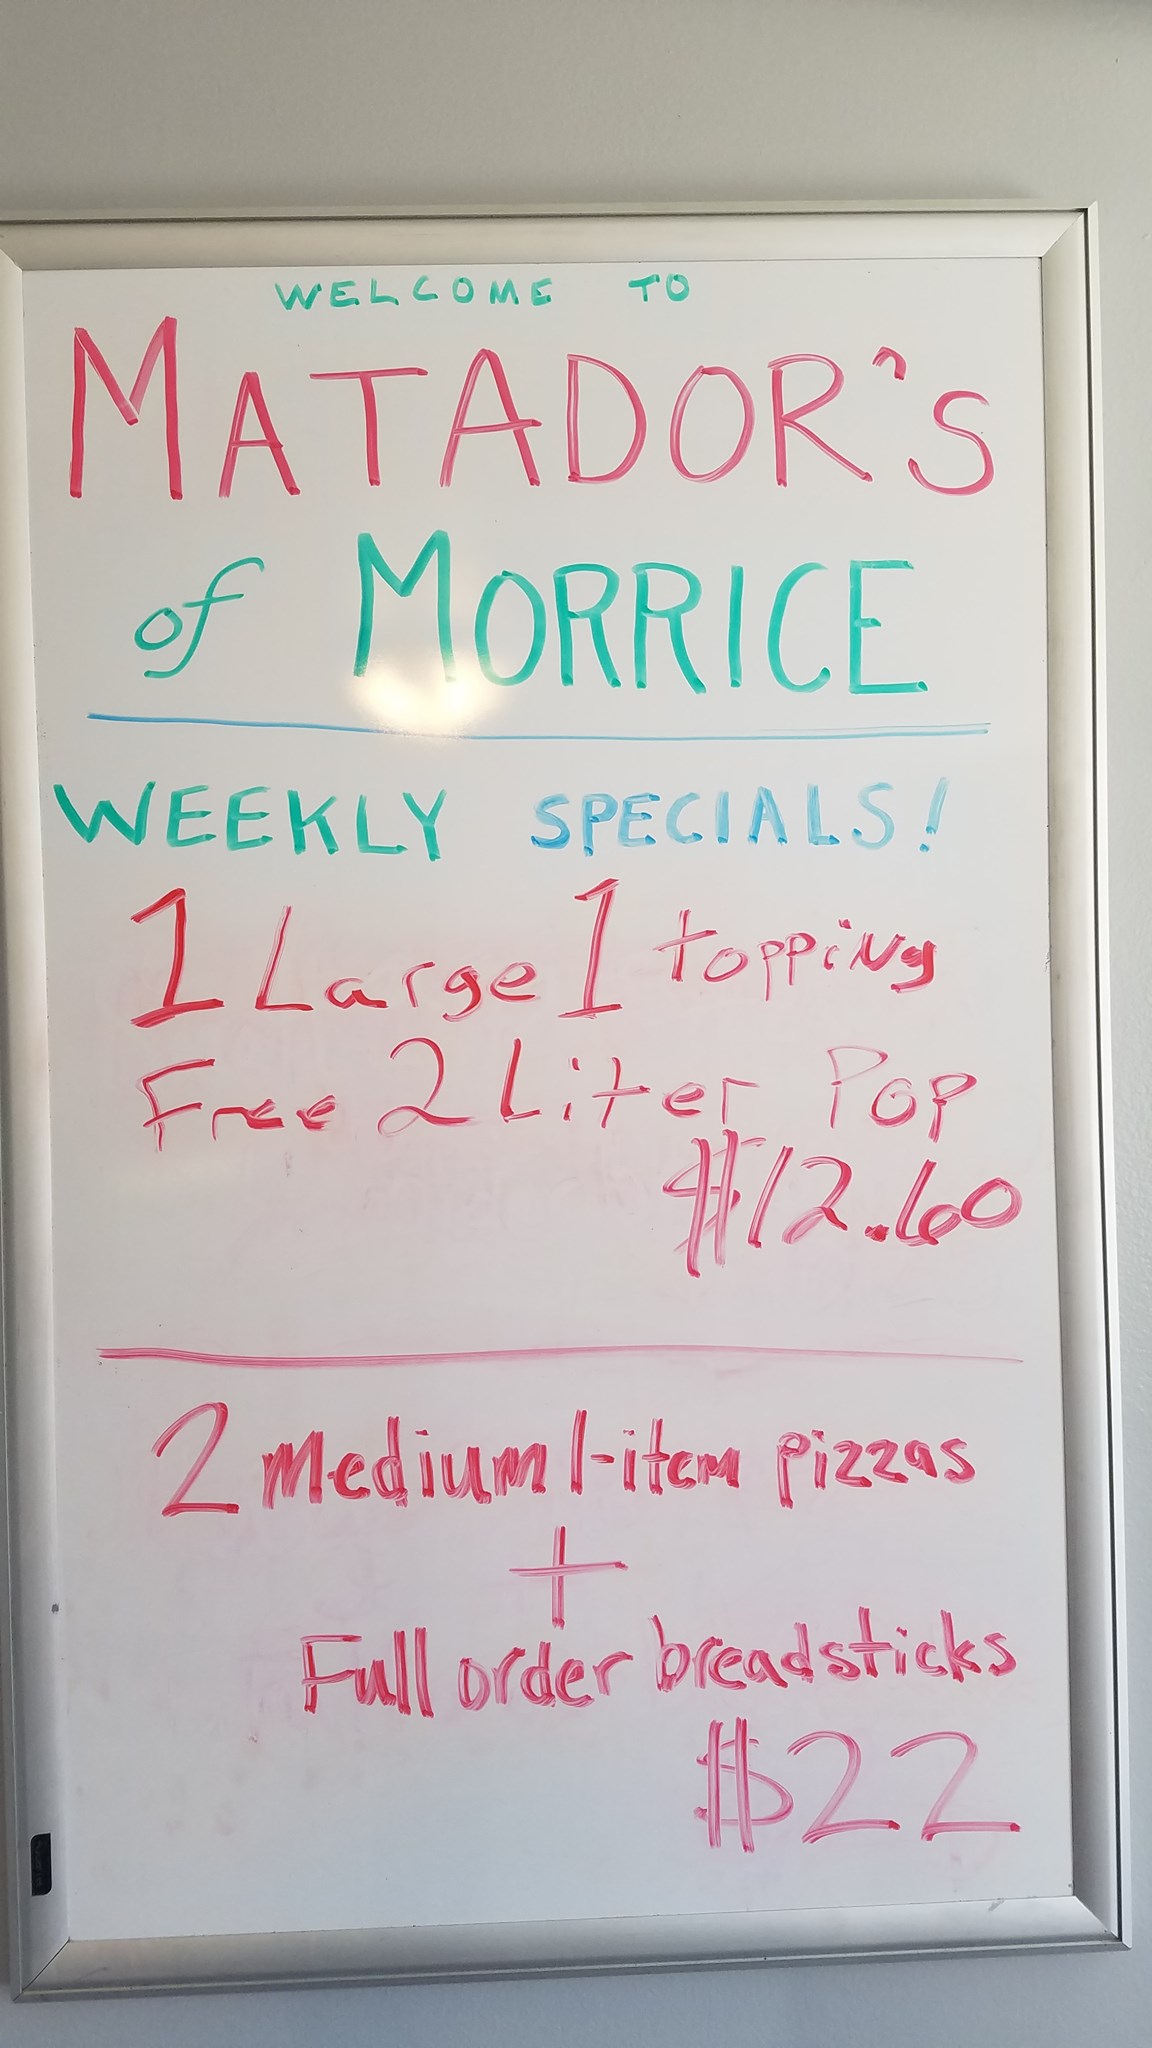 WELCOME TO
MATADOR'S
of MORRICE
WEEKLY SPECIALS!
1 Large 1 topping
Free 2 Liter Pop
$12.60
2 Medium 1-item pizzas
+
Full order breadsticks
$22